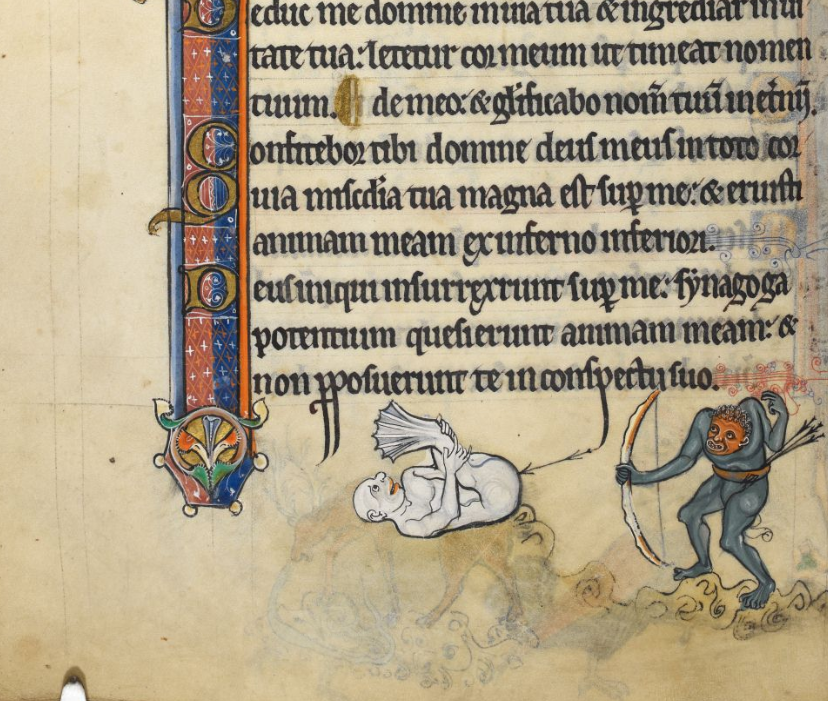 Deduc me domine in uia tua & ingrediar in ueri
tate tua: letetur cor meum ut timeat nomen
tuum. de meo: & gl̄ificabo nom̄ tuū in et̄nū.
Confitebor tibi domine deus meus in toto cor
Quia misc̄dia tua magna est suꝑ me: & eruisti
animam meam ex inferno inferiori.
Deus iniqui insurrexerunt suꝑ me: synagoga
potentium quesierunt animam meam: &
non ꝓposuerunt te in conspectu suo.